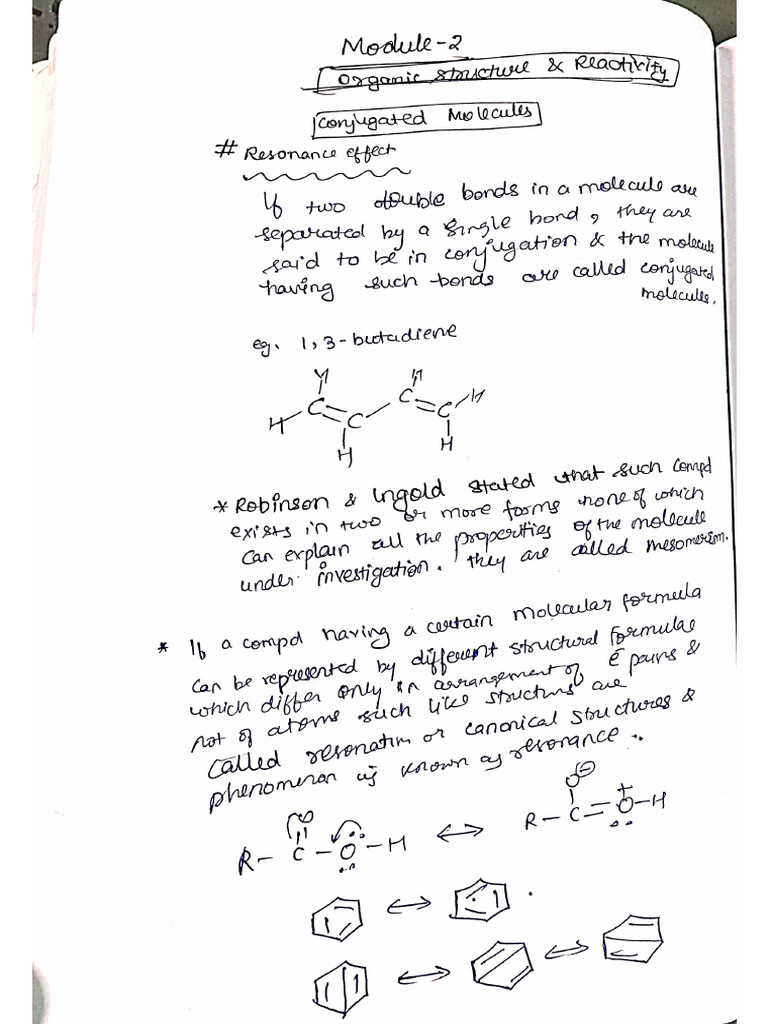 Module-2
Organic Structure & Reactivity
Conjugated Molecules
# Resonance effect
If two double bonds in a molecule are
separated by a single bond, they are
said to be in conjugation & the molecule
having such bonds are called conjugated
molecules.
eg. 1,3-butadiene
H H
C C H
H C C
H H
* Robinson & Ingold stated that such compd
exists in two or more forms none of which
can explain all the properties of the molecule
under investigation. They are called mesomerism.
* If a compd having a certain molecular formula
can be represented by different structural formulae
which differ only in arrangement of e pairs &
not of atoms such like structures are
called or canonical structures &
phenomenon is known as resonance
O O⊖
R – C – O – H ↔ R – C = O⁺ – H
↔
↔ ↔